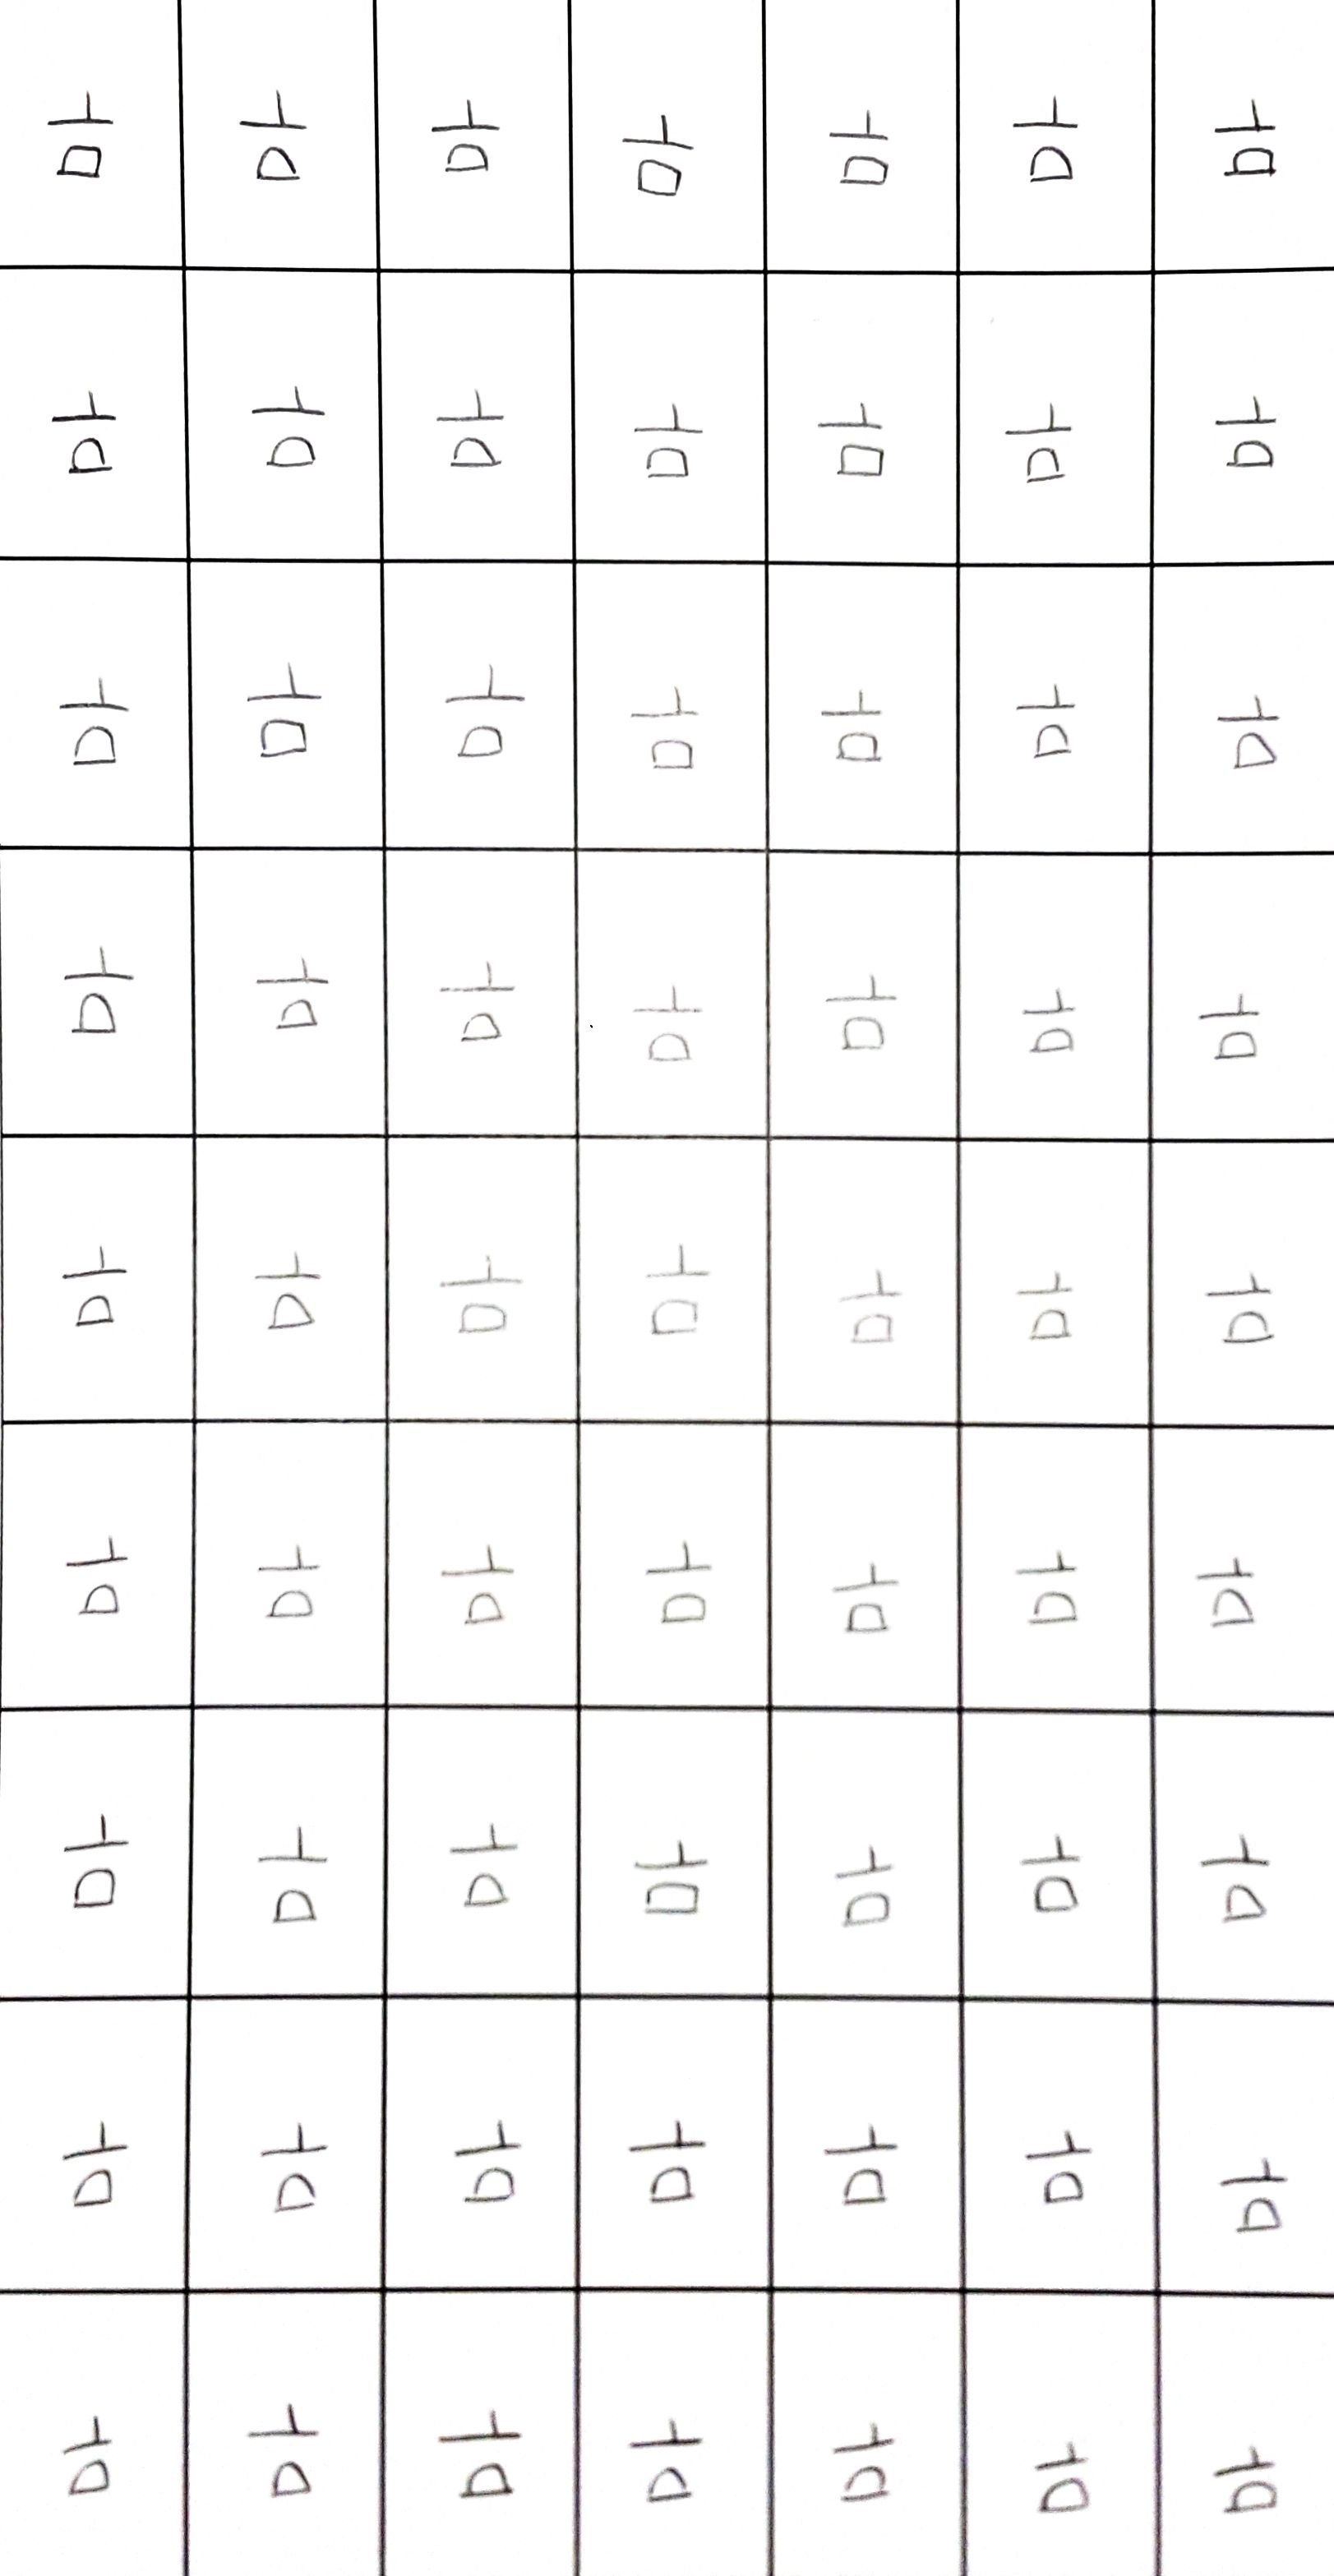 마 마 마 마 마 마 마 마 마
마 마 마 마 마 마 마 마 마
마 마 마 마 마 마 마 마 마
마 마 마 마 마 마 마 마 마
마 마 마 마 마 마 마 마 마
마 마 마 마 마 마 마 마 마
마 마 마 마 마 마 마 마 마